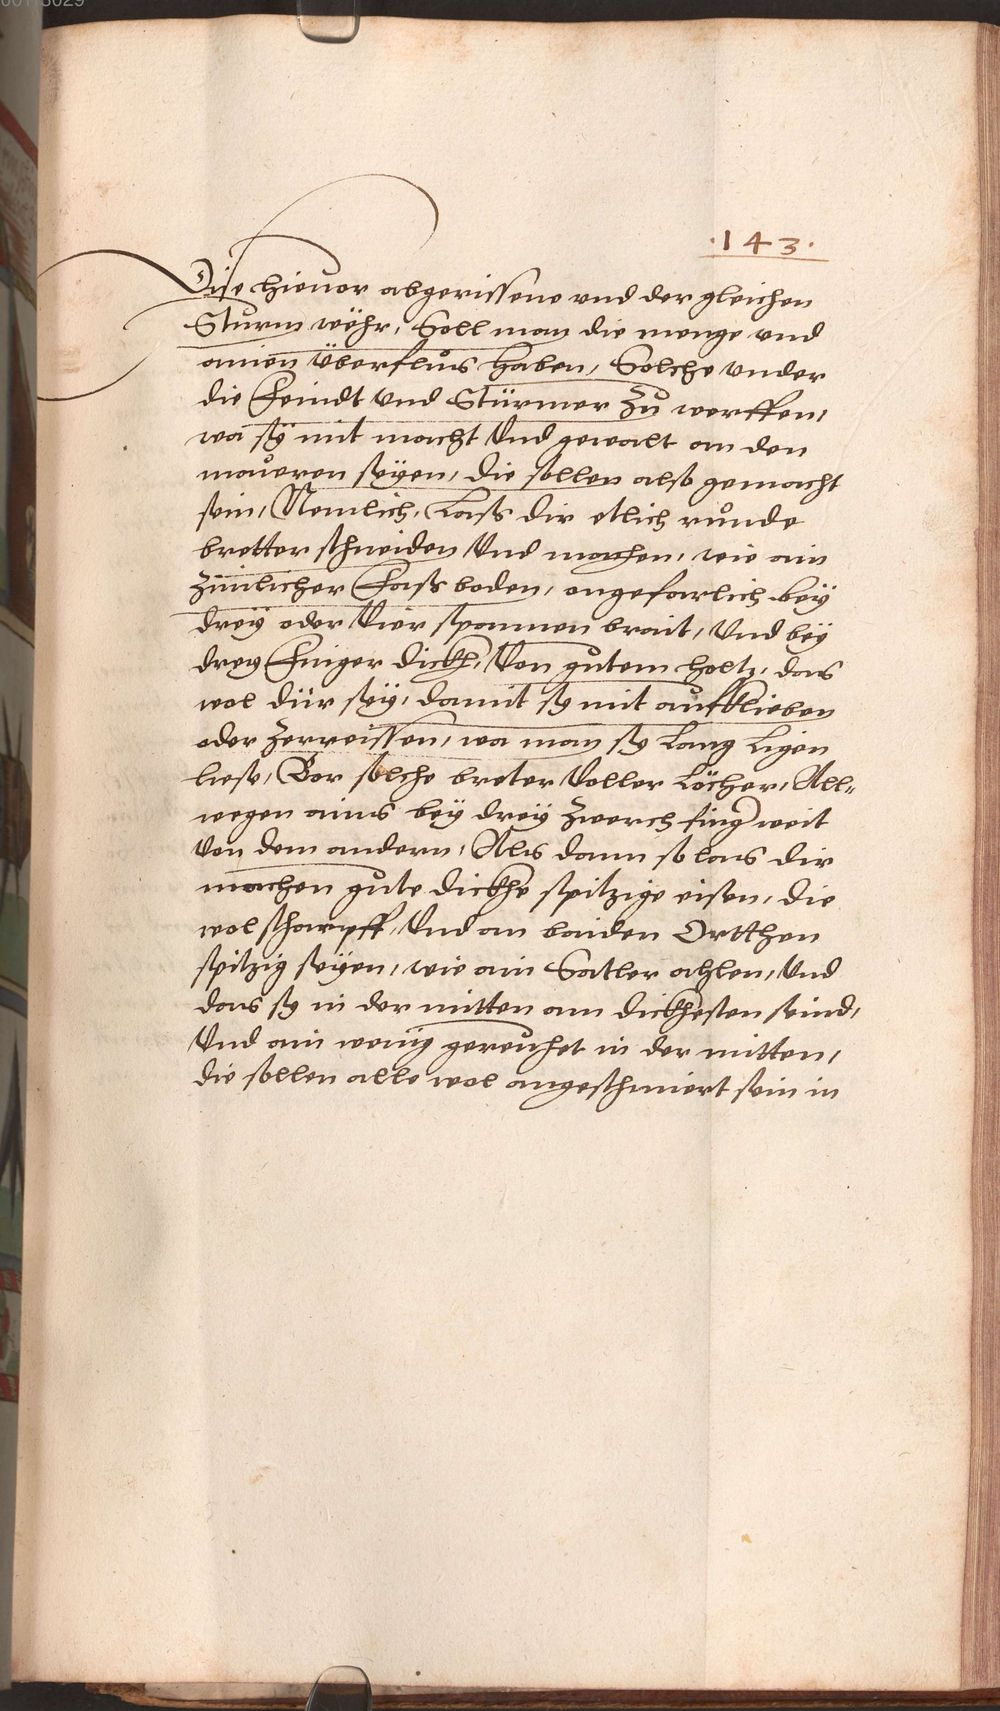 .143.
Dise hieuor abgerissene vnd der gleichen
Sturm wöhr, Soll man die menge vnd
ainen überflus haben, Solche vnder
die Feindt vnd Stürmer zu werffen,
wa sÿ mit macht Vnd gewalt an den
maueren seÿen, die sollen also gemacht
sein, Nemlich, Lass dir etlich runde
bretter schneiden Vnd machen, wie ain
zimlicher Fass boden, ongefarlich beÿ
dreÿ oder Vier spannen brait, Vnd beÿ
dreÿ Finger dickh, Von gutem holtz, das
wol dür seÿ, damit sÿ nit auffklieben
oder zerreissen, wa man sÿ Lang Ligen
liess, Bor solche breter Voller Löcher, All-
wegen ains beÿ dreÿ zwerch fing weit
Von dem andern, Als dann so las dir
machen gute dickhe spitzige eisen, die
wol scharpff, Vnd an baiden Ortthen
spitzig seÿen, wie ain Satler ahlen, Vnd
das sÿ in der mitten am dickhesten seind,
Vnd ain wenig gereuhet in der mitten,
die sollen alle wol angeschmiert sein in